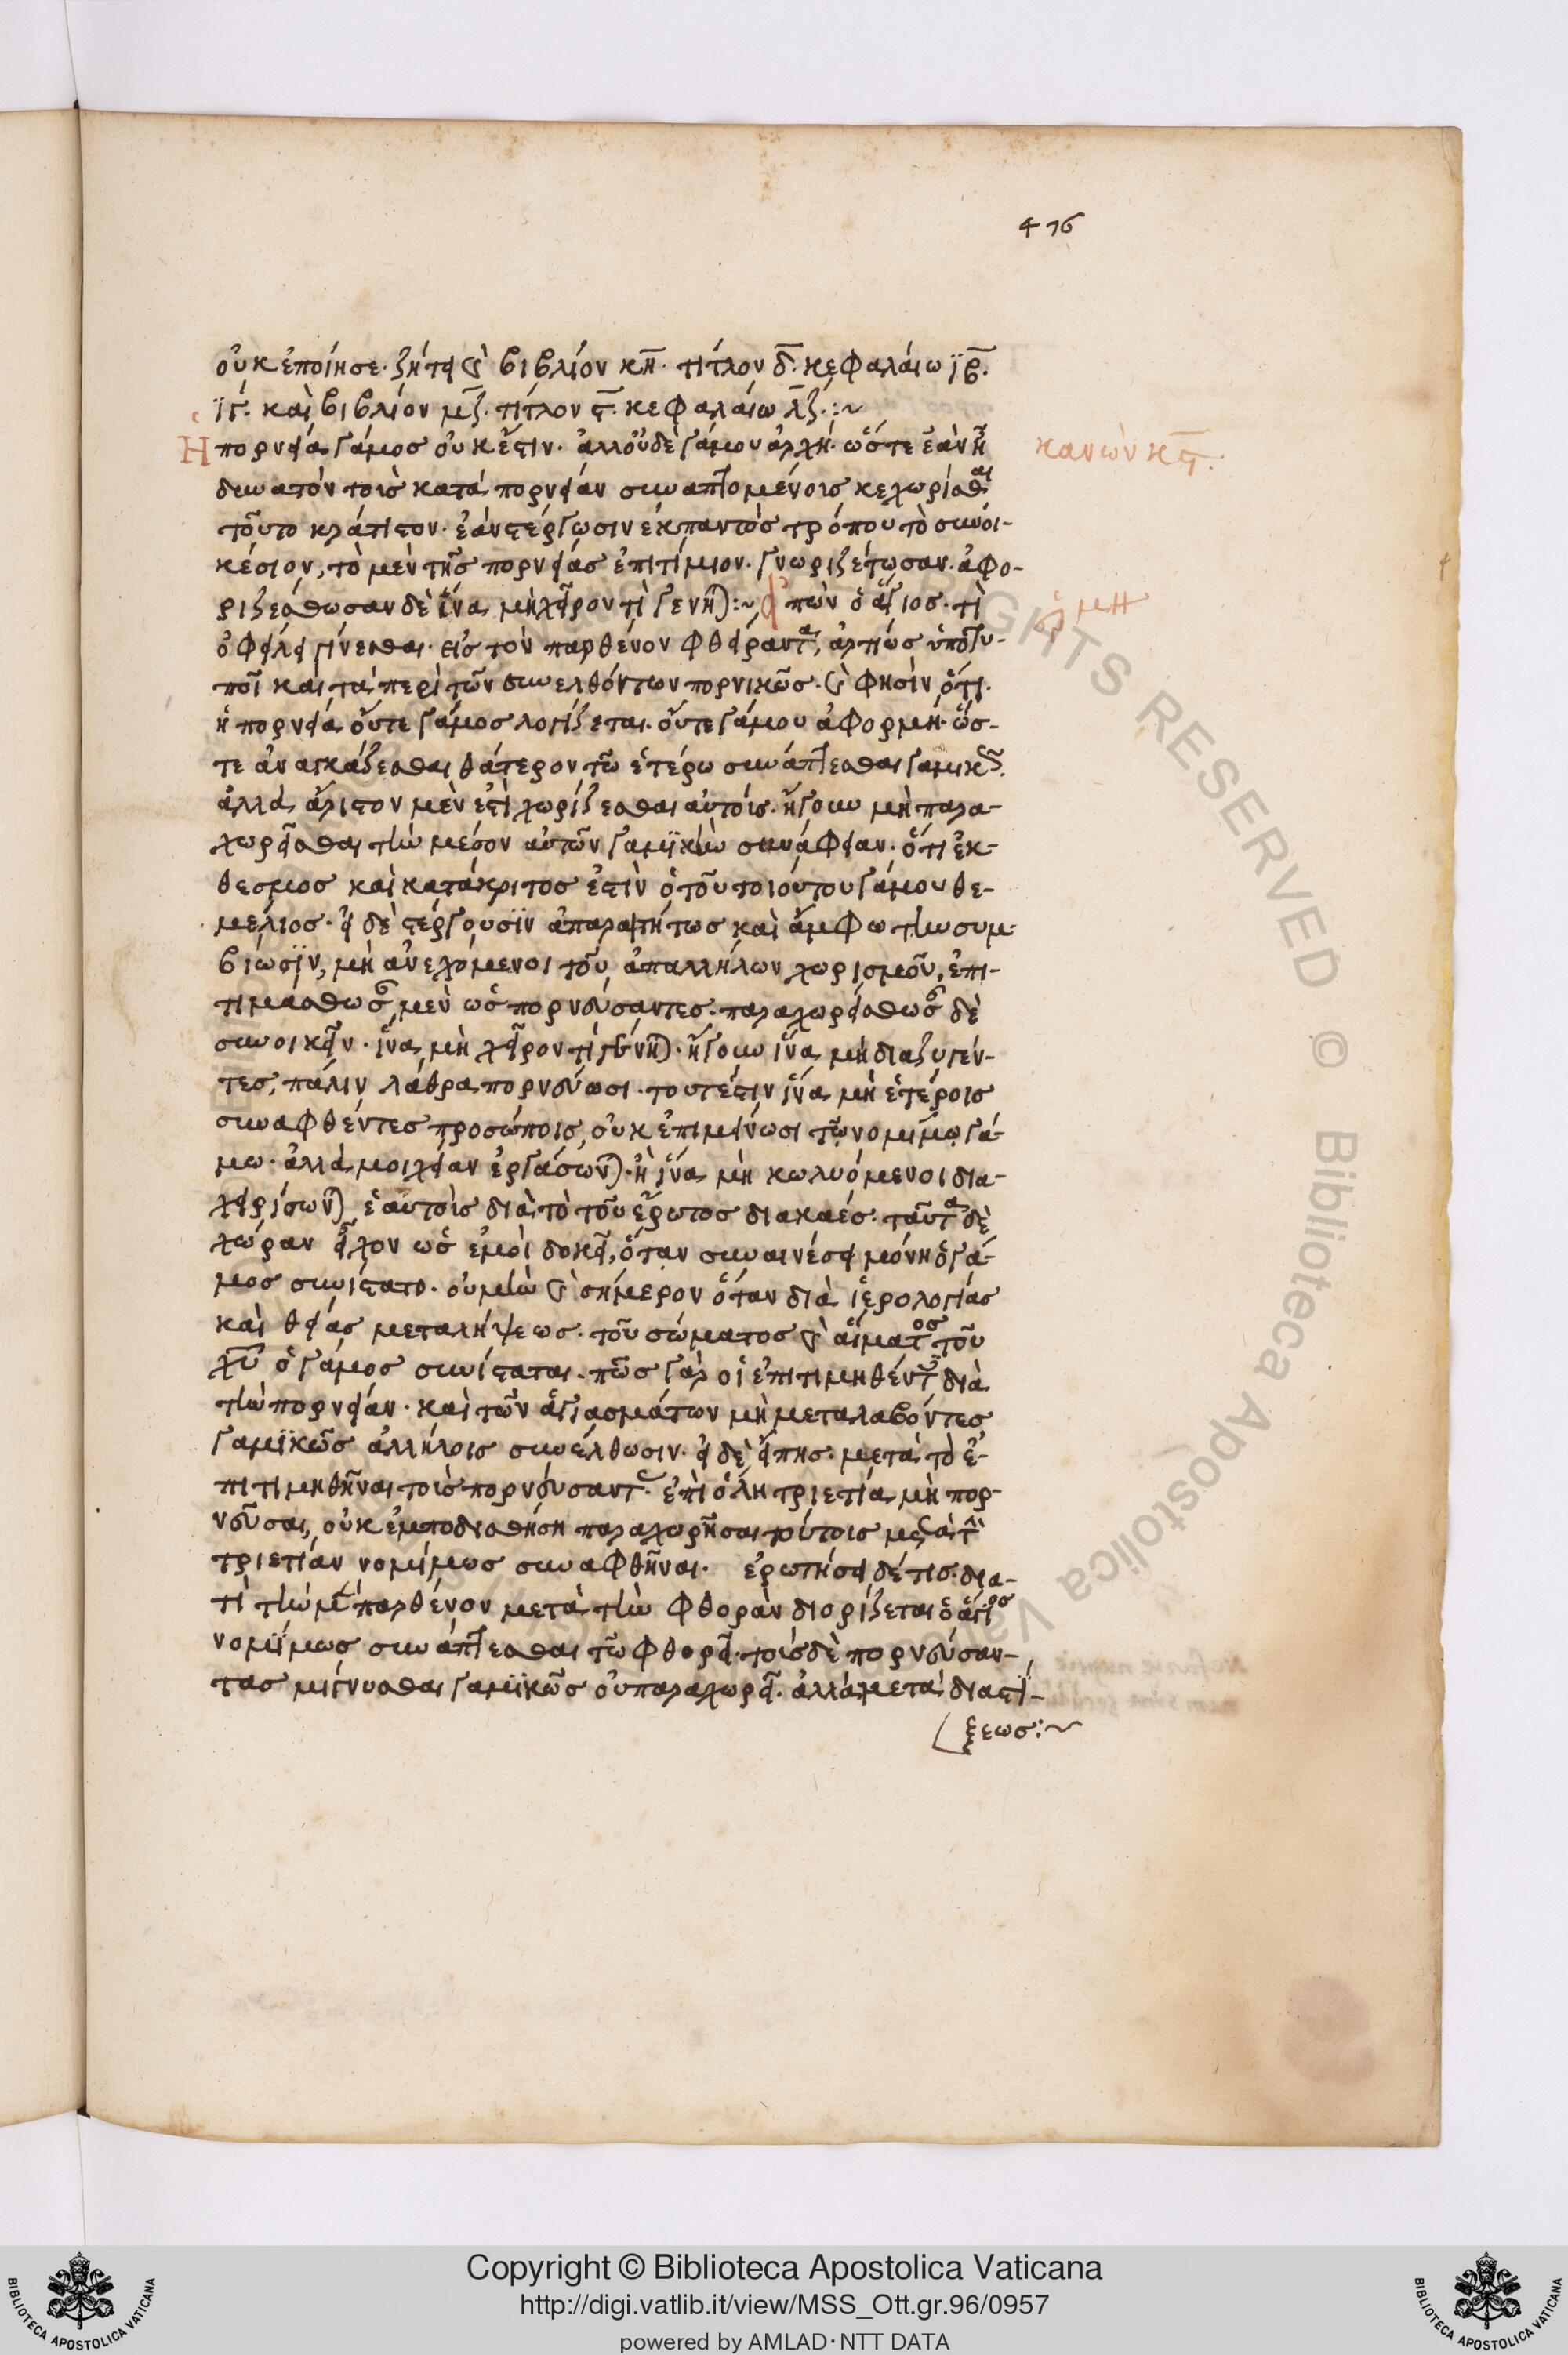 476
οὐκ ἐποίησε. ζήτει καὶ βιβλίον κη. τίτλον δ. κεφαλάιω ιβ.
ιγ. καὶ βιβλίον μζ. τίτλον ϛ. κεφαλάιω λζ. :~
Ἡ πορνεία γάμος οὐκ ἔστιν. ἀλλ' οὐδὲ γάμου ἀρχή. ὥστε ἐὰν ἦ
κανὼν κϛ.
δυνατὸν τοὶς κατὰ πορνείαν συναπτομένοις κεχωρίσθαι
τοῦτο κράτιστον. ἐὰν στέργωσιν ἐκ παντὸς τρόπου τὸ συνοι-
κέσιον, τὸ μὲν τῆς πορνείας ἐπιτίμιον. γνωριζέτωσαν. ἀφο-
ριζέσθωσαν δὲ ἵνα μὴ χεῖρον τὶ γένηται :~ εἰπὼν ὁ ἅγιος. τὶ
ὀφείλει γίνεσθαι. εἰς τὸν παρθένον φθείραντα, ἀρτίως ὑποτυ-
ποῖ καὶ τὰ περὶ τῶν συνελθόντων πορνικῶς. καὶ φησὶν ὅτι.
ἡ πορνεία οὔτε γάμος λογίζεται. οὔτε γάμου ἀφορμή. ὥσ-
τε ἀναγκάζεσθαι θάτερον τῶ ἑτέρω συνάπτεσθαι γαμικῶς.
ἀλλὰ ἄριστον μὲν ἐστὶ χωρίζεσθαι αὐτοίς. ἤγουν μὴ παρα-
χωρεῖσθαι τὴν μέσον αὐτῶν γαμϊκὴν συνάφειαν. ὅτι ἔκ-
θεσμος καὶ κατάκριτος ἐστὶν ὁ τοῦ τοιούτου γάμου θε-
μέλιος. εἰ δὲ στέργουσϊν ἀπαραιτήτως καὶ ἄμφω τὴν συμ-
βίωσϊν, μὴ ἀνεχόμενοι τοῦ ἀπαλλήλων χωρισμοῦ, ἐπι-
τιμάσθωσαν μὲν ὡς πορνεύσαντες. παραχωρείσθωσαν δὲ
συνοικεῖν. ἵνα μὴ χεῖρον τὶ γένηται. ἤγουν ἵνα μὴ διαζυγέν-
τες, πάλιν λάθρα πορνεύωσι. τουτέστιν ἵνα μὴ ἑτέροις
συναφθέντες προσώποις, οὐκ ἐπιμείνωσι τῶ νομίμω γά-
μω. ἀλλὰ μοιχείαν ἐργάσωνται. ἢ ἵνα μὴ κωλυόμενοι δια-
χειρίσωνται ἑαυτοὶς διὰ τὸ τοῦ ἔρωτος διακαές. ταῦτα δὲ
χώραν εἶχον ὡς ἐμοὶ δοκεῖ, ὅταν συναινέσει μόνη ὁ γά-
μος συνίστατο. οὐ μὴν καὶ σήμερον ὅταν διὰ ἱερολογίας
καὶ θείας μεταλήψεως. τοῦ σώματος καὶ αἵματος τοῦ
χυ ὁ γάμος συνίσταται. πῶς γὰρ οἱ ἐπιτιμηθέντες διὰ
τὴν πορνείαν. καὶ τῶν ἁγιασμάτων μὴ μεταλαβόντες
γαμϊκῶς ἀλλήλοις συνέλθωσιν. εἰ δὲ εἴπης. μετὰ τὸ ἐ-
πιτιμηθῆναι τοὶς πορνεύσαντας. ἐπὶ ὅλη τριετία μὴ πορ-
νεῦσαι, οὐκ ἐμποδισθήση παραχωρῆσαι τούτοις μετὰ τὴν
τριετίαν νομίμως συναφθῆναι. ἐρωτήσει δέ τις. δια-
τὶ τὴν μὲν παρθένον μετὰ τὴν φθορὰν διορίζεται ὁ ἅγιος
νομϊμως συνάπτεσθαι τῶ φθορεῖ. τοὶς δὲ πορνεύσαν-
τας μίγνυσθαι γαμϊκῶς οὐ παραχωρεῖ. ἀλλὰ μετὰ διαστί-
ξεως :~
Copyright © Biblioteca Apostolica Vaticana
http://digi.vatlib.it/view/MSS_Ott.gr.96/0957
powered by AMLAD·NTT DATA